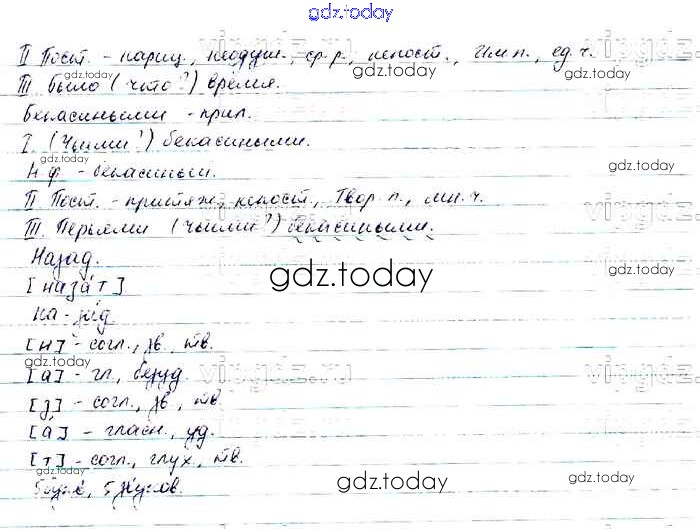 gdz.today
II Пост. - нариц., неодуш., ср. р., непост., Им. п., ед. ч.
III. Было (что?) время.
Бекасиными - прил.
I. (Чьими?) бекасиными.
Н. ф. - бекасиный.
II Пост. - притяж., непост., Твор. п., мн. ч.
III. Перьями (чьими?) бекасиными.
Назад.
[наза́т]
На-зад.
[н] - согл., зв., тв.
[а] - гл., безуд.
[з] - согл., зв., тв.
[а́] - гласн., уд.
[т] - согл., глух., тв.
5 букв, 5 звуков.
gdz.today
gdz.today
gdz.today
gdz.today
gdz.today
gdz.today
gdz.today
gdz.today
gdz.today
gdz.today
vipgdz.ru
vipgdz.ru